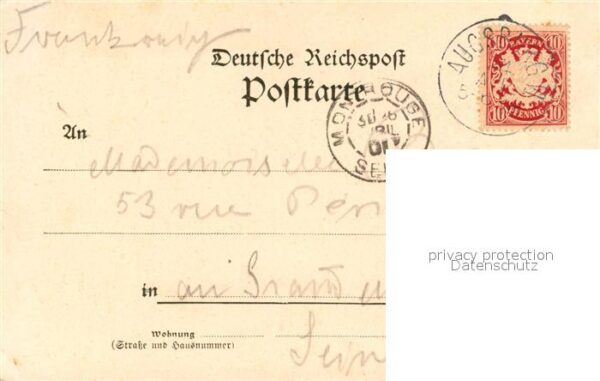 Frankreich
Deutsche Reichspost
Postkarte
AUGSB
BAYERN
10 10
PFENNIG
10 10
MONTROUGE
AVRIL
01
SEI
An
Mademoiselle
53 rue
in
au Grand
Wohnung
(Straße und Hausnummer)
Sein
privacy protection
Datenschutz